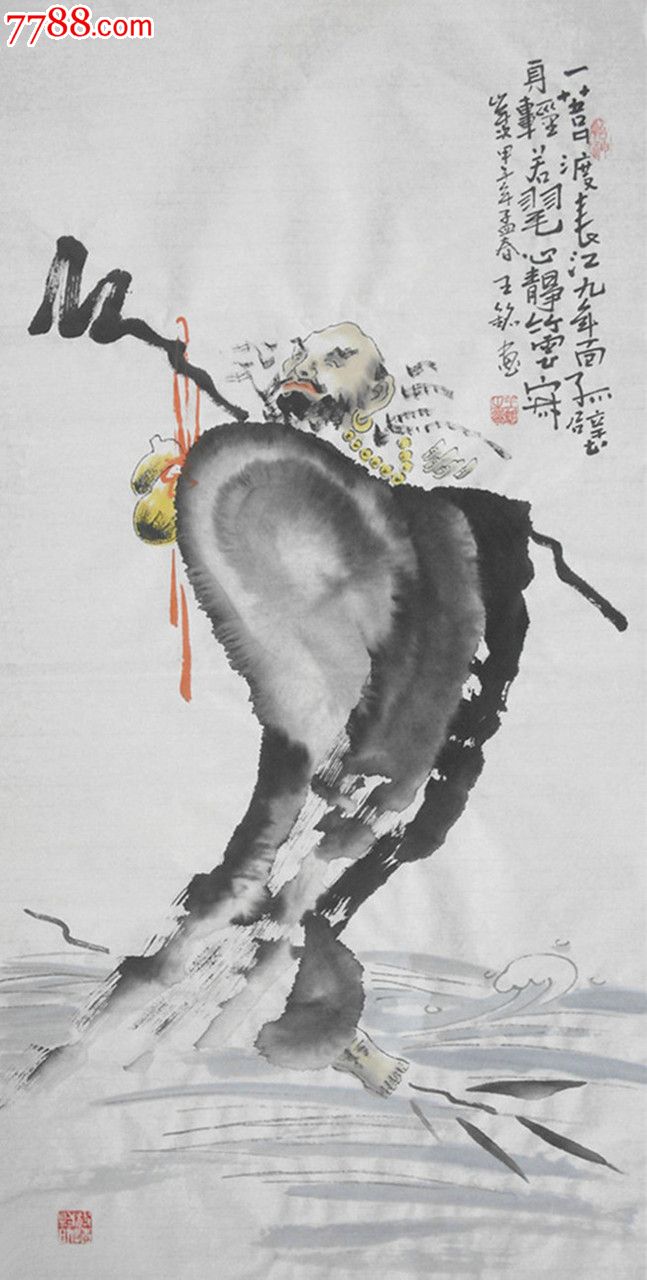 7788.com
一葦渡長江九年面壁
身輕若羽毛心靜雲寂
歲次甲子年孟春王銘画